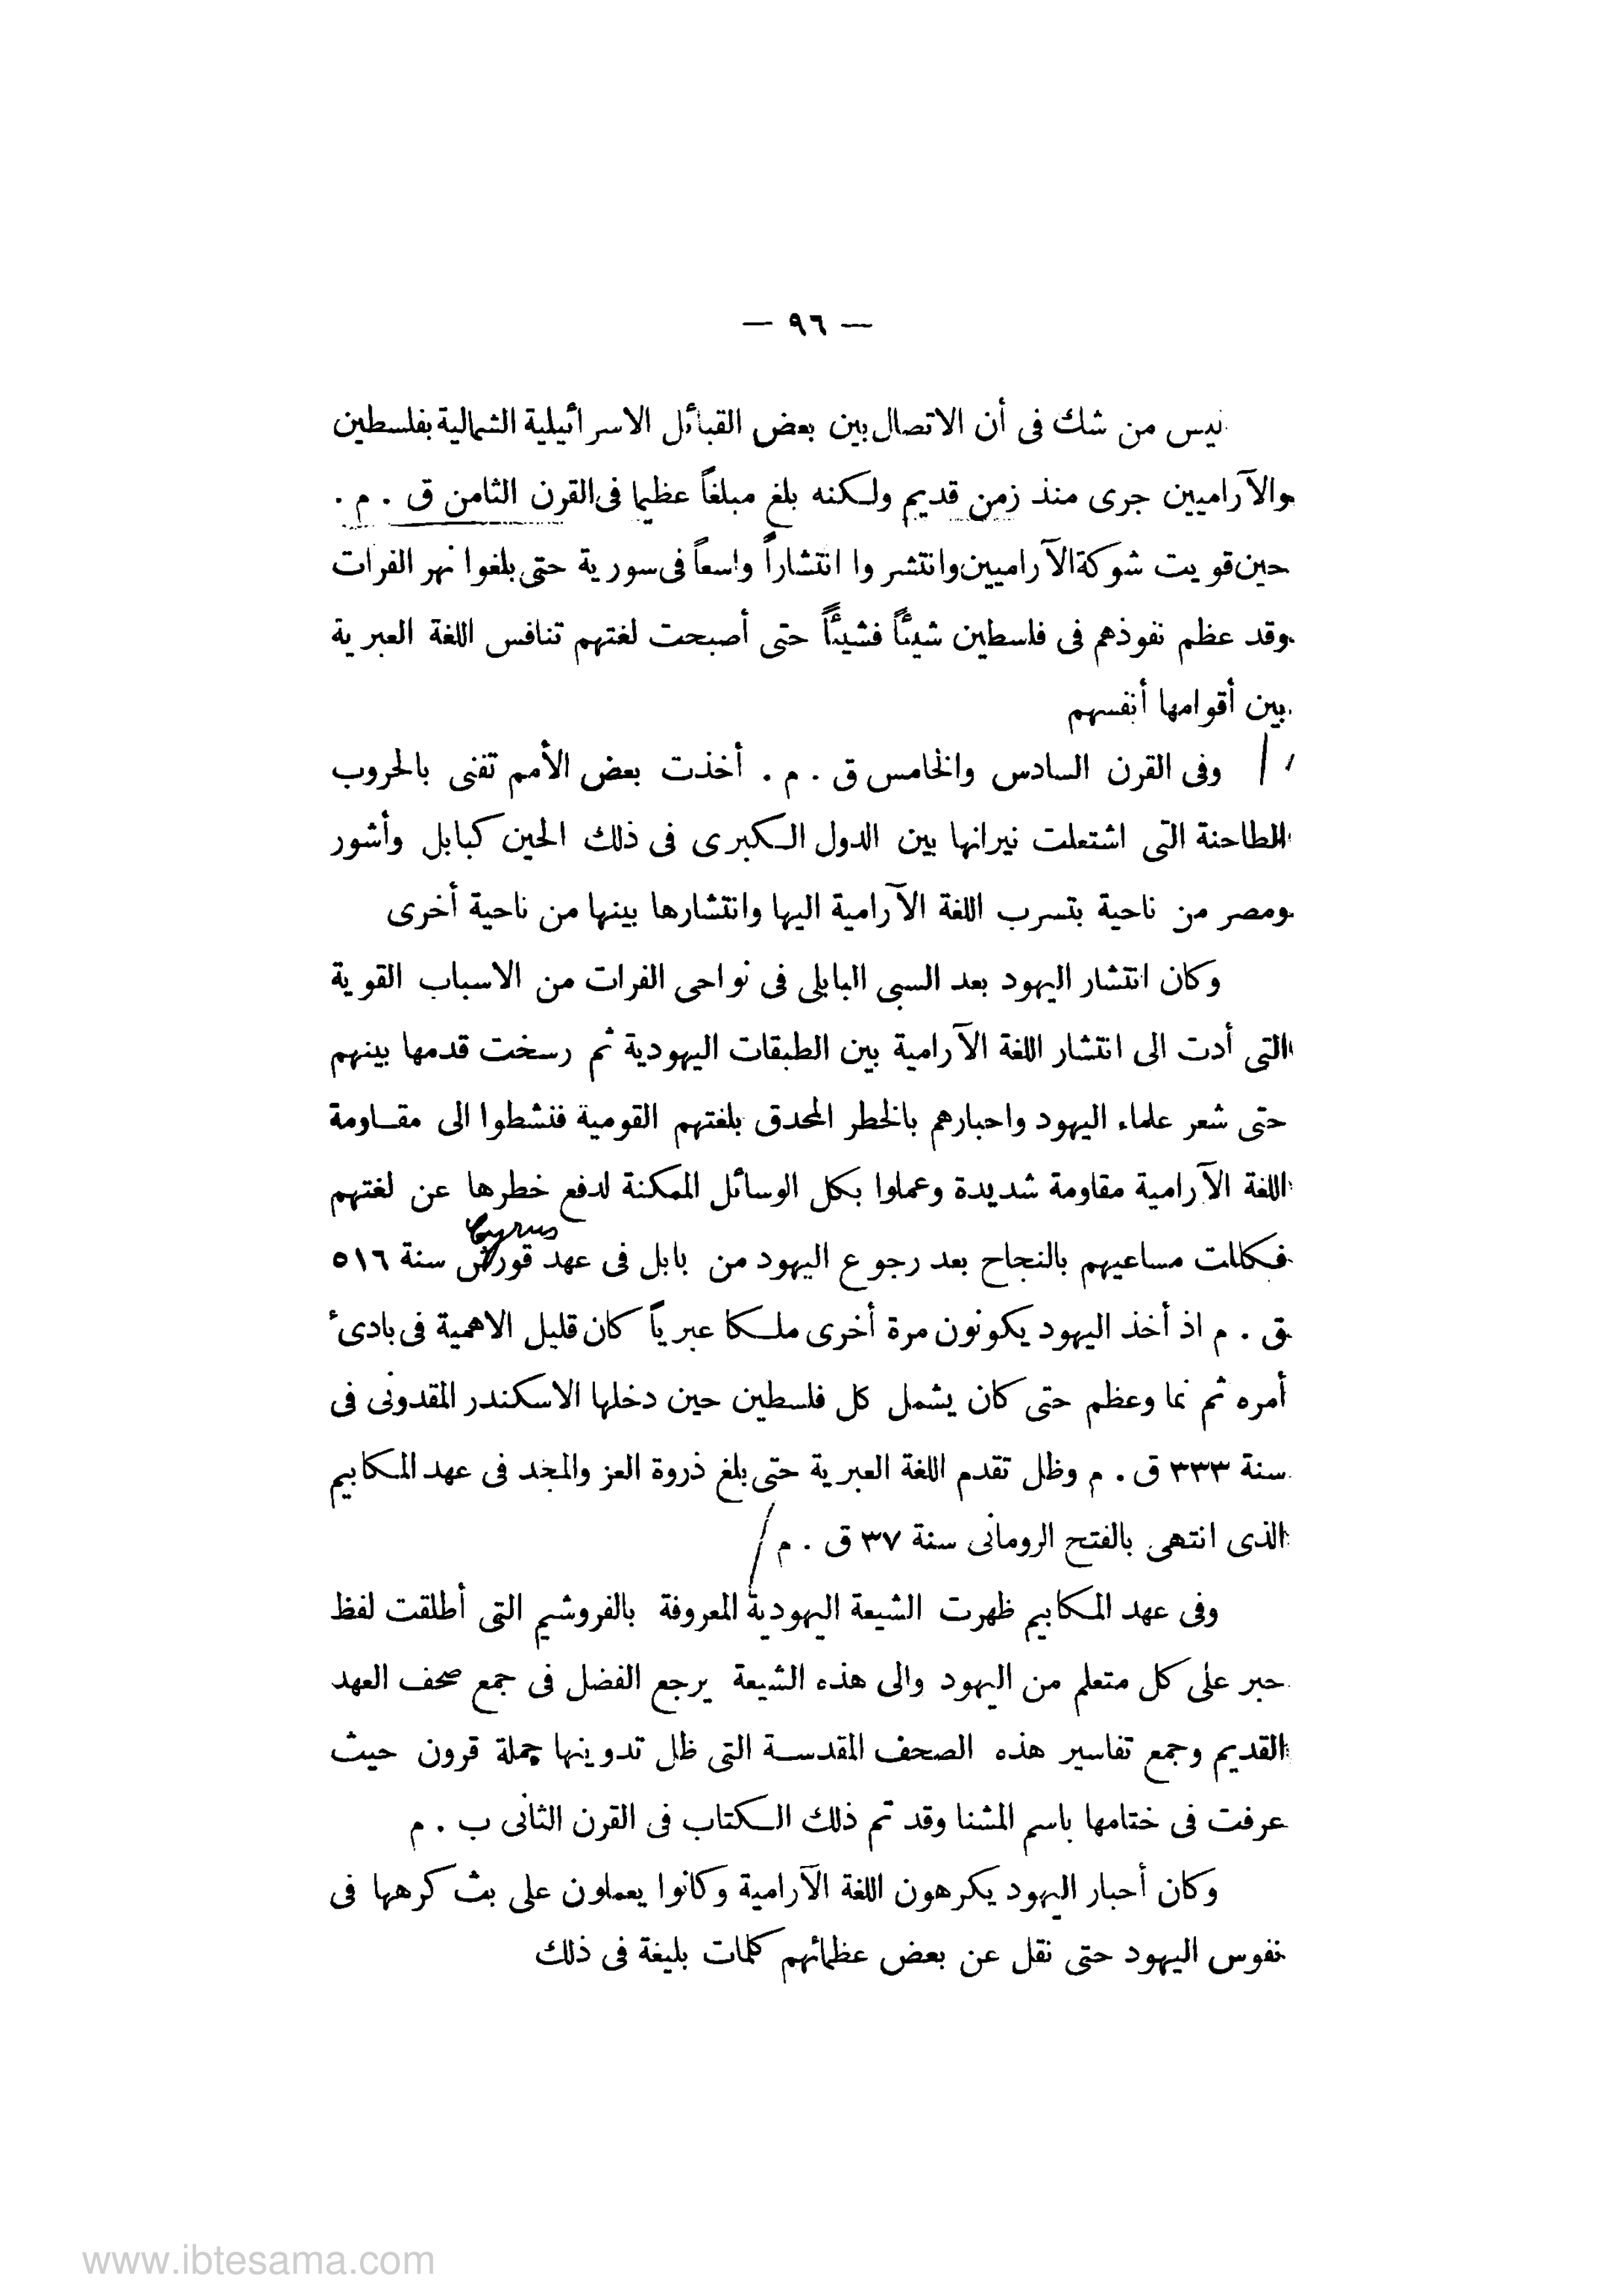 — ٩٦ —
ليس من شك فى أن الاتصال بين بعض القبائل الاسرائيلية الشمالية بفلسطين
والآراميين جرى منذ زمن قديم ولكنه بلغ مبلغاً عظيما فى القرن الثامن ق . م .
حين قويت شوكة الآراميين وانتشروا انتشاراً واسعاً فى سورية حتى بلغوا نهر الفرات
وقد عظم نفوذهم فى فلسطين شيئاً فشيئاً حتى أصبحت لغتهم تنافس اللغة العبرية
بين أقوامها أنفسهم
وفى القرن السادس والخامس ق . م . أخذت بعض الأمم تفنى بالحروب
الطاحنة التى اشتعلت نيرانها بين الدول الكبرى فى ذلك الحين كبابل وأشور
ومصر من ناحية بتسرب اللغة الآرامية اليها وانتشارها بينها من ناحية أخرى
وكان انتشار اليهود بعد السبى البابلى فى نواحى الفرات من الاسباب القوية
التى أدت الى انتشار اللغة الآرامية بين الطبقات اليهودية ثم رسخت قدمها بينهم
حتى شعر علماء اليهود واحبارهم بالخطر المحدق بلغتهم القومية فنشطوا الى مقاومة
اللغة الآرامية مقاومة شديدة وعملوا بكل الوسائل الممكنة لدفع خطرها عن لغتهم
Cyrus
فكللت مساعيهم بالنجاح بعد رجوع اليهود من بابل فى عهد قورش سنة ٥١٦
ق . م اذ أخذ اليهود يكونون مرة أخرى ملكا عبرياً كان قليل الاهمية فى بادىء
أمره ثم نما وعظم حتى كان يشمل كل فلسطين حين دخلها الاسكندر المقدونى فى
سنة ٣٣٣ ق . م وظل تقدم اللغة العبرية حتى بلغ ذروة العز والمجد فى عهد المكابيم
الذى انتهى بالفتح الرومانى سنة ٣٧ ق . م
وفى عهد المكابيم ظهرت الشيعة اليهودية المعروفة بالفروشيم التى أطلقت لفظ
حبر على كل متعلم من اليهود والى هذه الشيعة يرجع الفضل فى جمع صحف العهد
القديم وجمع تفاسير هذه الصحف المقدسة التى ظل تدوينها جملة قرون حيث
عرفت فى ختامها باسم المشنا وقد تم ذلك الكتاب فى القرن الثانى ب . م
وكان أحبار اليهود يكرهون اللغة الآرامية وكانوا يعملون على بث كرهها فى
نفوس اليهود حتى نقل عن بعض عظمائهم كلمات بليغة فى ذلك
www.ibtesama.com